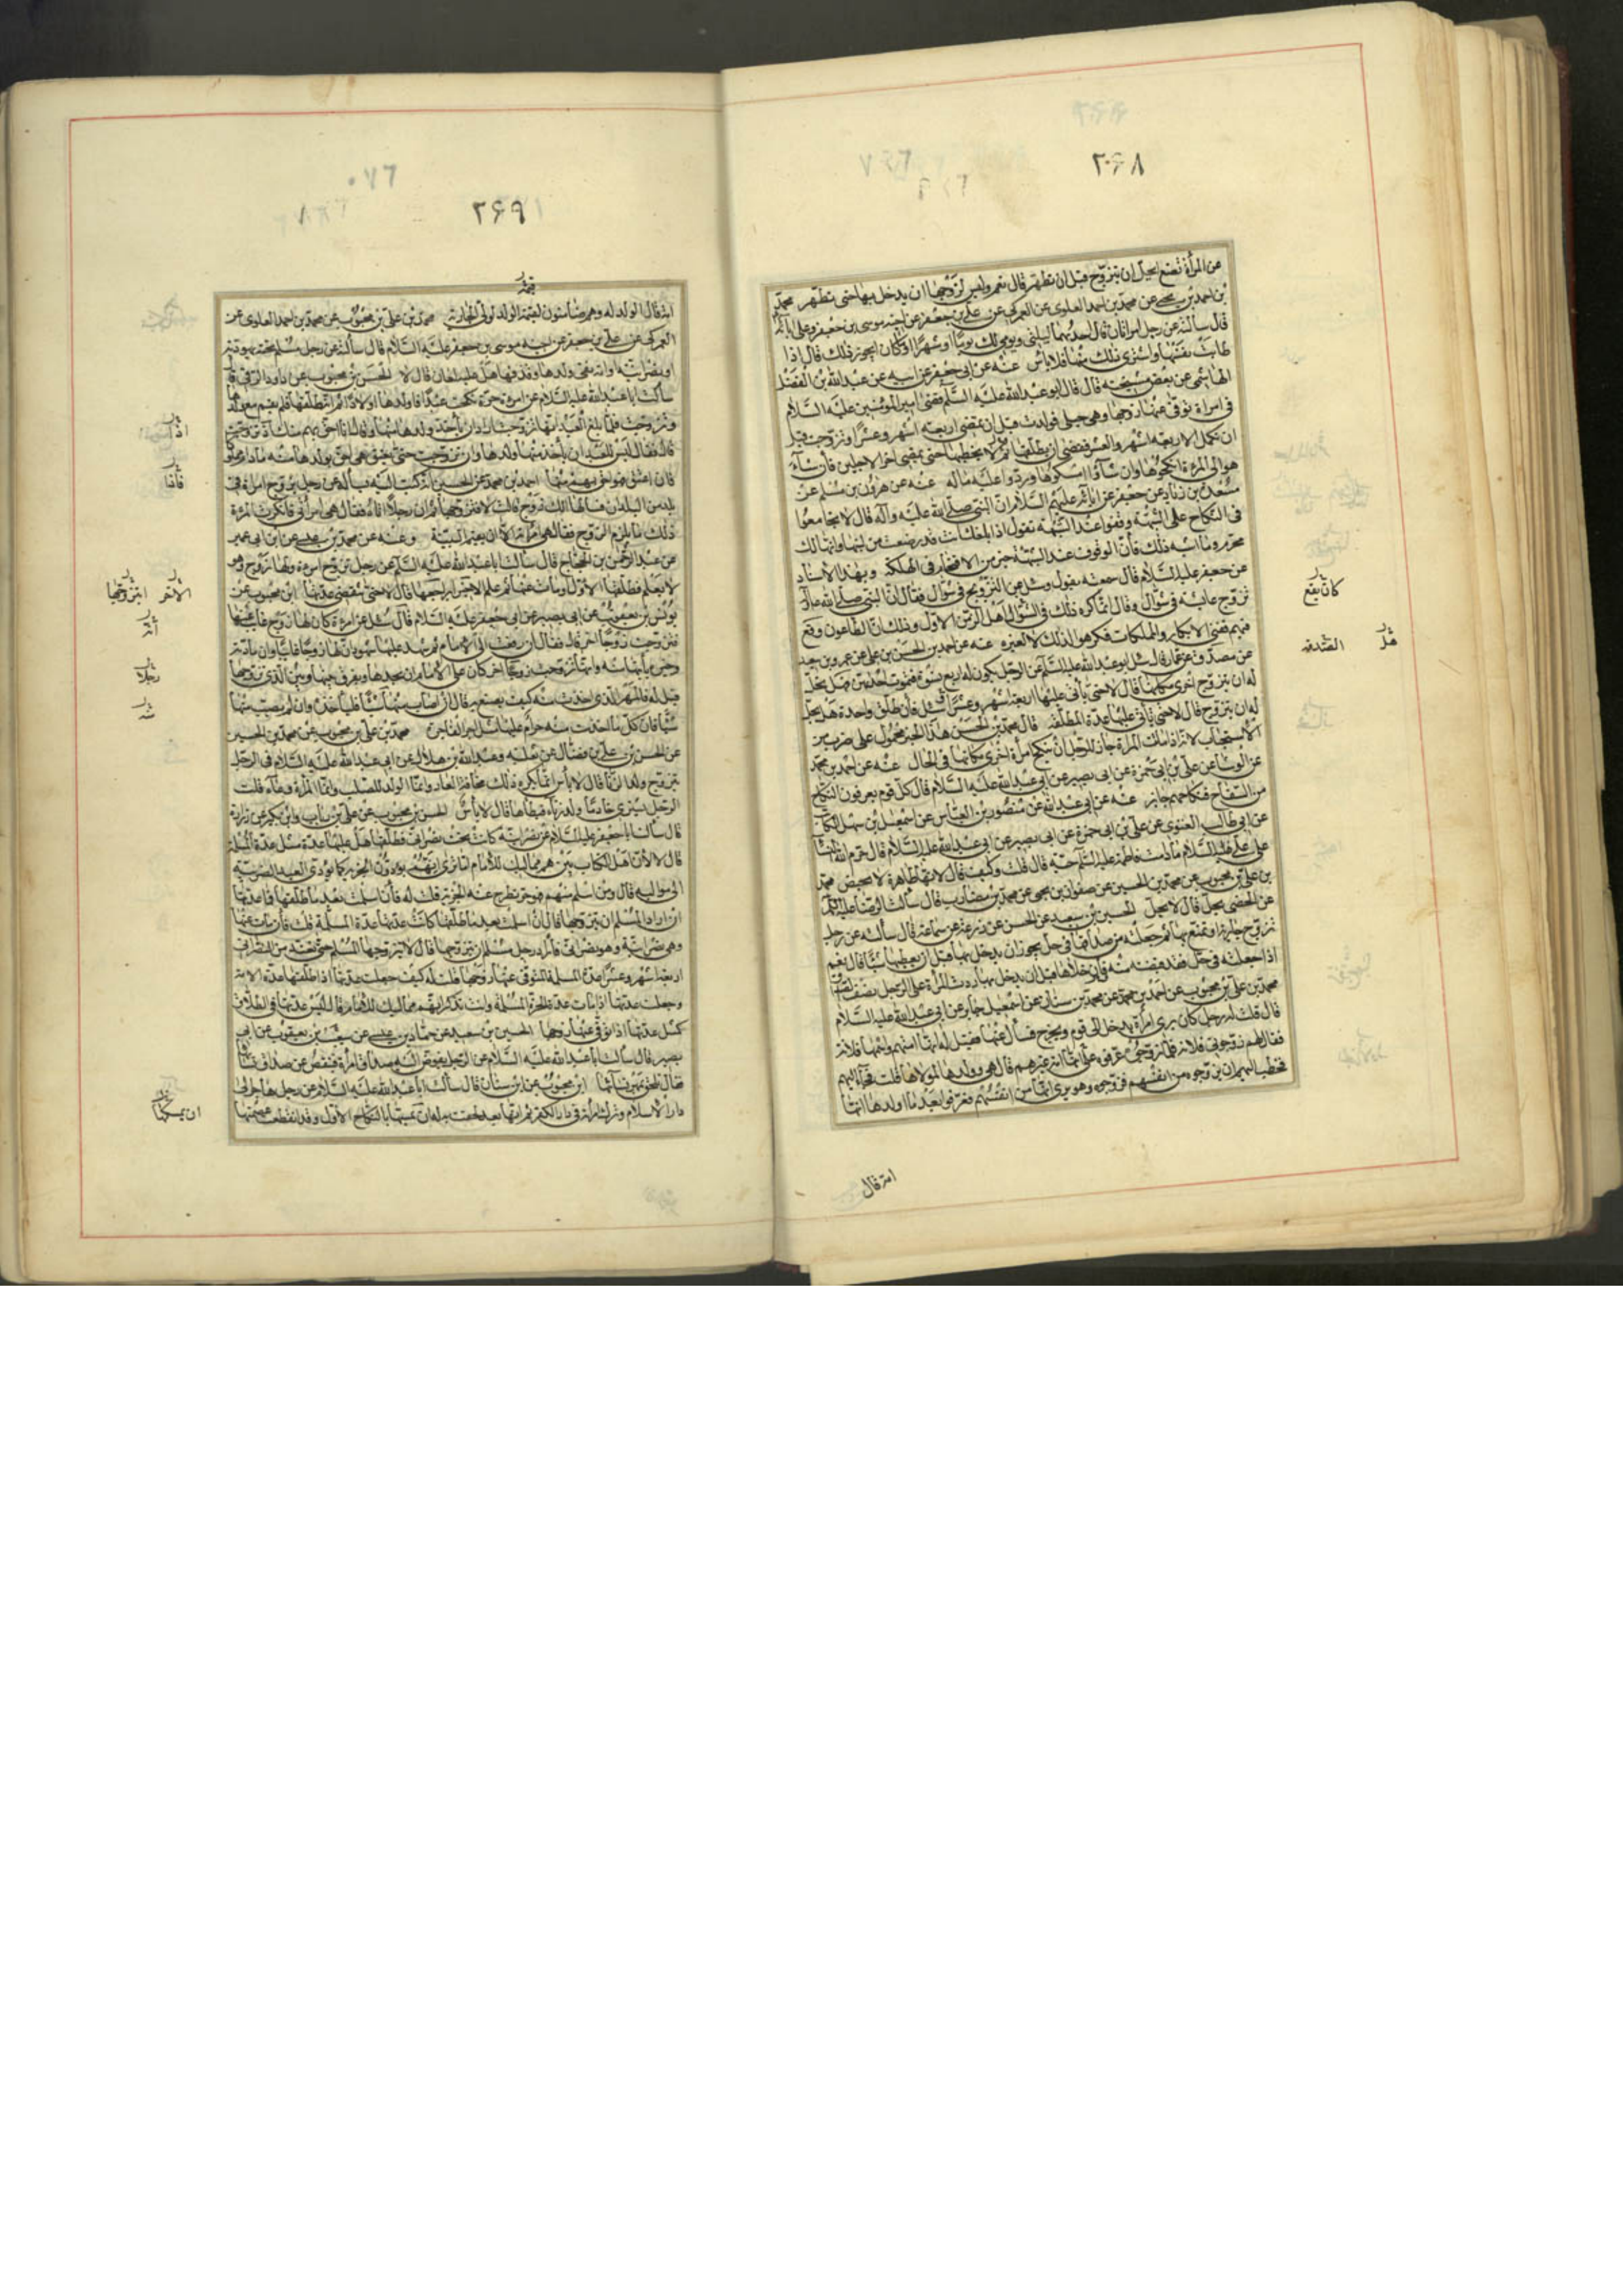 ٢٦٨
عن المرأة تضع ايحل ان تتزوج قبل ان تطهر قال نعم وليس لزوجها ان يدخل بها حتى تطهر محمد
بن احمد بن يحيى عن محمد بن احمد العلوى عن العمركى عن على بن جعفر عن اخيه موسى بن جعفر
قال سألته عن رجل له امرأتان قال احدهما ليلتى ويومى لك يوما او شهرا او ما كان ايجوز ذلك قال اذا
طابت نفسها واشترى ذلك منها فلا بأس عنه عن ابى جعفر عن ابيه عن عبد الله بن الفضل
الهاشمى عن بعض مشيخته قال قال ابو عبد الله عليه السلم قضى امير المؤمنين عليه السلام
فى امراة توفى عنها زوجها وهى حبلى فولدت قبل ان تمضى اربعة اشهر وعشرا وتزوجت قبل
ان تكمل الاربعة الاشهر والعشر فقضى ان يطلقها ثم لا يخطبها حتى يمضى اخر الاجلين فان شاء
هوالى المرءة انكحوها وان شاؤا امسكوها وردوا عليه ماله عنه عن هرون بن مسلم عن
مسعدة بن زياد عن جعفر عن ابائه عليهم السلام ان النبى صلى الله عليه وآله قال لا تجامعوا
فى النكاح على الشبهة وقفوا عند الشبهة يقول اذا بلغك انك قد رضعت من لبنها وانها لك
محرم وما اشبه ذلك فان الوقوف عند الشبهة خير من الاقتحام فى الهلكة وبهذا الاسناد
عن جعفر عليه السلام قال سمعته يقول وسئل عن التزويج فى شوال فقال ان النبى صلى الله عليه وآله
تزوج عايشة فى شوال وقال انما كره ذلك فى شوال اهل الزمن الاول وذلك ان الطاعون وقع
فيهم ففنى الابكار والمملكات فكرهوا لذلك لا لغيره عنه عن احمد بن الحسن بن على عن عمرو بن سعيد
عن مصدق عن عمار قال سئل ابو عبد الله عليه السلم عن الرجل يكون له اربع نسوة فتموت احديهن هل يحل
له ان يتزوج اخرى مكانها قال لا حتى يأتى عليها اربعة اشهر وعشر سئل فان طلق واحدة هل يحل
له ان يتزوج قال لا حتى يأتى عليها عدة المطلقة قال محمد بن الحسن هذا الخبر محمول على ضرب من
الاستحباب لانه اذا ماتت المرأة جاز للرجل ان ينكح امرأة اخرى مكانها فى الحال عنه عن احمد بن محمد
عن الوشا عن على بن ابى حمزة عن ابى بصير عن ابى عبد الله عليه السلام قال كل قوم يعرفون النكاح
من السفاح فنكاحهم جايز عنه عن ابى عبد الله عن منصور بن العباس عن اسمعيل بن سهل الكاتب
عن ابى طالب الغنوى عن على بن ابى حمزة عن ابى بصير عن ابى عبد الله عليه السلام قال حرم الله النساء
على على عليه السلام ما دامت فاطمة عليها السلم حية قال قلت وكيف قال لانها طاهرة لا تحيض محمد
بن على بن محبوب عن محمد بن الحسين عن صفوان بن يحيى عن محمد بن مضارب قال سألت الرضا عليه السلم
عن الخصى يحل قال لا يحل الحسين بن سعيد عن الحسن عن زرعة عن سماعة قال سألته عن رجل
تزوج جارية او تمتع بها ثم جعلته من صداقها فى حل يجوز ان يدخل بها قبل ان يعطيها شيئا قال نعم
اذا جعلته فى حل فقد قبضته منه فان خلاها قبل ان يدخل بها ردت المرأة على الرجل نصف الصداق
محمد بن على بن محبوب عن احمد بن حمزة عن محمد بن سنان عن اسمعيل جابر عن ابى عبد الله عليه السلام
قال قلت له رجل كان يرى امرأة يدخل الى قوم ويخرج فسأل عنها فقيل له انها امتهم واسمها فلانة
فقال لهم زوجونى فلانة فلما زوجوه عرفوه على انها امة غيرهم قال هى وولدها لمولاها قلت فجاء اليهم
فخطب اليهم ان يزوجوه من انفسهم فزوجوه وهو يرى انها من انفسهم فعرفوا بعد ما اولدها انها
امة قال
كان يقع
هل
الصدقه
٢٦٩
قيمة
امة قال الولد له وهم ضامنون لقيمة الولد لمولى الجارية محمد بن على بن محبوب عن محمد بن احمد العلوى عن
العمركى عن على بن جعفر عن اخيه موسى بن جعفر عليه السلام قال سألته عن رجل مسلم تحته يهودية
او نصرانية وامة نفى ولدها وقذفها هل عليه لعان قال لا الحسن بن محبوب عن داود الرقى قال
سألت ابا عبد الله عليه السلام عن امرءة حرة نكحت عبدا فاولدها اولادا ثم انه طلقها فلم تقم مع ولدها
وتزوجت فلما بلغ العبد انها تزوجت اراد ان يأخذ ولدها منها وقال انا احق بهم منك اذ تزوجت
قال فقال ليس للعبد ان يأخذ منها ولدها وان تزوجت حتى يعتق هى احق بولدها منه ما دام مملوكا
فان اعتق فهو احق بهم منها احمد بن محمد عن الحسين انه كتب اليه يسأله عن رجل يتزوج امرأة فى
بلد من البلدان فسألها الك زوج قالت لا فتزوجها ثم ان رجلا اتاه فقال هى امرأتى فانكرت المرءة
ذلك ما يلزم الزوج فقال هى امرأته الا ان يقيم البينة وعنه عن محمد بن عيسى عن ابن ابى عمير
عن عبد الرحمن بن الحجاج قال سألت ابا عبد الله عليه السلم عن رجل تزوج امرءة ولها زوج وهو
لا يعلم فطلقها الاول او مات عنها ثم علم الاخير ايراجعها قال لا حتى تنقضى عدتها ابن محبوب عن
يونس بن يعقوب عن ابى بصير عن ابى جعفر عليه السلام قال سئل عن امرءة كان لها زوج غايب عنها
فتزوجت زوجا اخر قال فقال ان رفعت الى الامام ثم شهد عليها شهود ان لها زوجا غايبا وان مادته
وخبره يأتيها منه وانها تزوجت زوجا اخر كان على الامام ان يحدها ويفرق بينها وبين الذى تزوجها
قيل له فالمهر الذى اخذت منه كيف يصنع به قال ان اصاب منها شيئا فليأخذه وان لم يصب منها
شيئا فان كل ما اخذت منه حرام عليها مثل اجر الفاجرة محمد بن على بن محبوب عن محمد بن الحسين
عن الحسن بن على بن فضال عن ثعلبة وعبد الله بن هلال عن ابى عبد الله عليه السلام فى الرجل
يتزوج ولد الزنا قال لا بأس انما يكره ذلك مخافة العار وانما الولد للصلب وانما المرأة وعاء قلت
الرجل يشترى خادما ولد زناء فيطأها قال لا بأس الحسن بن محبوب عن على بن رئاب وابن بكير عن زرارة
قال سألت ابا جعفر عليه السلام عن نصرانية كانت تحت نصرانى فطلقها هل عليها عدة مثل عدة المسلمة
قال لا لان اهل الكتاب هم مماليك للامام الا ترى انهم يؤدون الجزية كما يؤدى العبد الضريبة
الى مواليه قال ومن اسلم منهم فهو حر تطرح عنه الجزية قلت له فان اسلمت بعد ما طلقها فما عدتها
ان اراد المسلم ان يتزوجها قال ان اسلمت بعد ما طلقها كانت عدتها عدة المسلمة قلت فان مات عنها
وهى نصرانية وهو نصرانى فاراد رجل مسلم ان يتزوجها قال لا يتزوجها المسلم حتى تعتد من النصرانى
اربعة اشهر وعشرا عدة المسلمة المتوفى عنها زوجها قلت له كيف جعلت عدتها اذا طلقها عدة الامة
وجعلت عدتها اذا مات عدة الحرة المسلمة وانت تذكر انهم مماليك للامام قال ليس عدتها فى الطلاق
كمثل عدتها اذا توفى عنها زوجها الحسين بن سعيد عن حماد بن عيسى عن شعيب بن يعقوب عن ابى
بصير قال سألت ابا عبد الله عليه السلام عن الرجل يفوض اليه صداق امرأة فنقص عن صداق نسائها
فقال تلحق بمهر نسائها ابن محبوب عن ابن سنان قال سألت ابا عبد الله عليه السلام عن رجل هاجر الى
دار الاسلام وترك امرأته فى دار الكفر ثم انها بعد لحقت به له ان يمسها بالنكاح الاول وقد انقطعت عصمتها
اذا
فأما
الاخر
ايتزوجها
انه
رجلا
منه
ان يمسكها